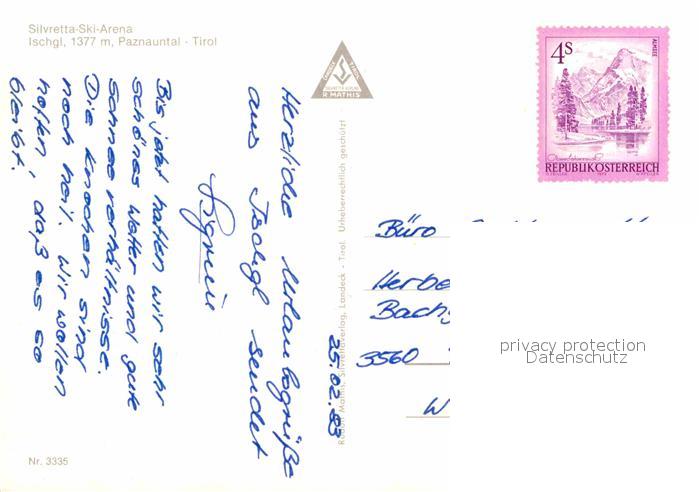 Silvretta-Ski-Arena
Ischgl, 1377 m, Paznauntal - Tirol
R. MATHIS
4S
ALMSEE
REPUBLIK ÖSTERREICH
25.02.83
Herzliche Urlaubsgrüße
aus Ischgl sendet
Bis jetzt hatten wir sehr
schönes Wetter und gute
Schneeverhältnisse.
Die Knochen sind
noch heil. Wir wollen
hoffen, daß es so
bleibt.
Rudolf Mathis, Silvrettaverlag, Landeck - Tirol. Urheberrechtlich geschützt
Büro
Herbe
Bach
3560
W
privacy protection
Datenschutz
Nr. 3335